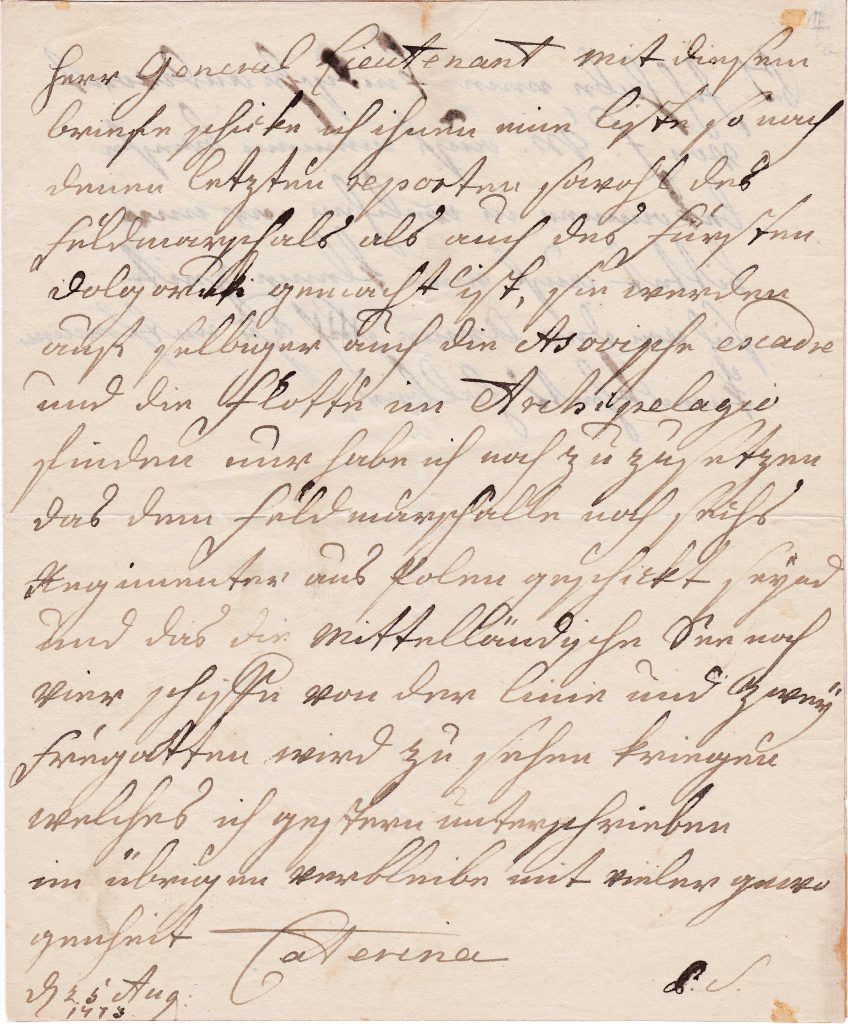 Herr General Lieutenant mit diesem
briefe schicke ich ihnen eine lyste so nach
denen letzten reporten sowohl des
Feldmarschals als auch des Fürsten
Dolgoruki gemacht ist, sie werden
auf selbiger auch die Asovische escadre
und die Flotte im Archipelagio
finden nur habe ich noch zu zusetzen
das dem Feldmarschalle noch sechs
Regimenter aus Polen geschickt seynd
und das die Mittelländische See noch
vier schiffe von der linie und zwey
Fregatten wird zu sehen kriegen
welches ich gestern unterschrieben
im übrigen verbleibe mit vieler gewo
genheit Caterina
d 25 Aug.
1773
P. S.